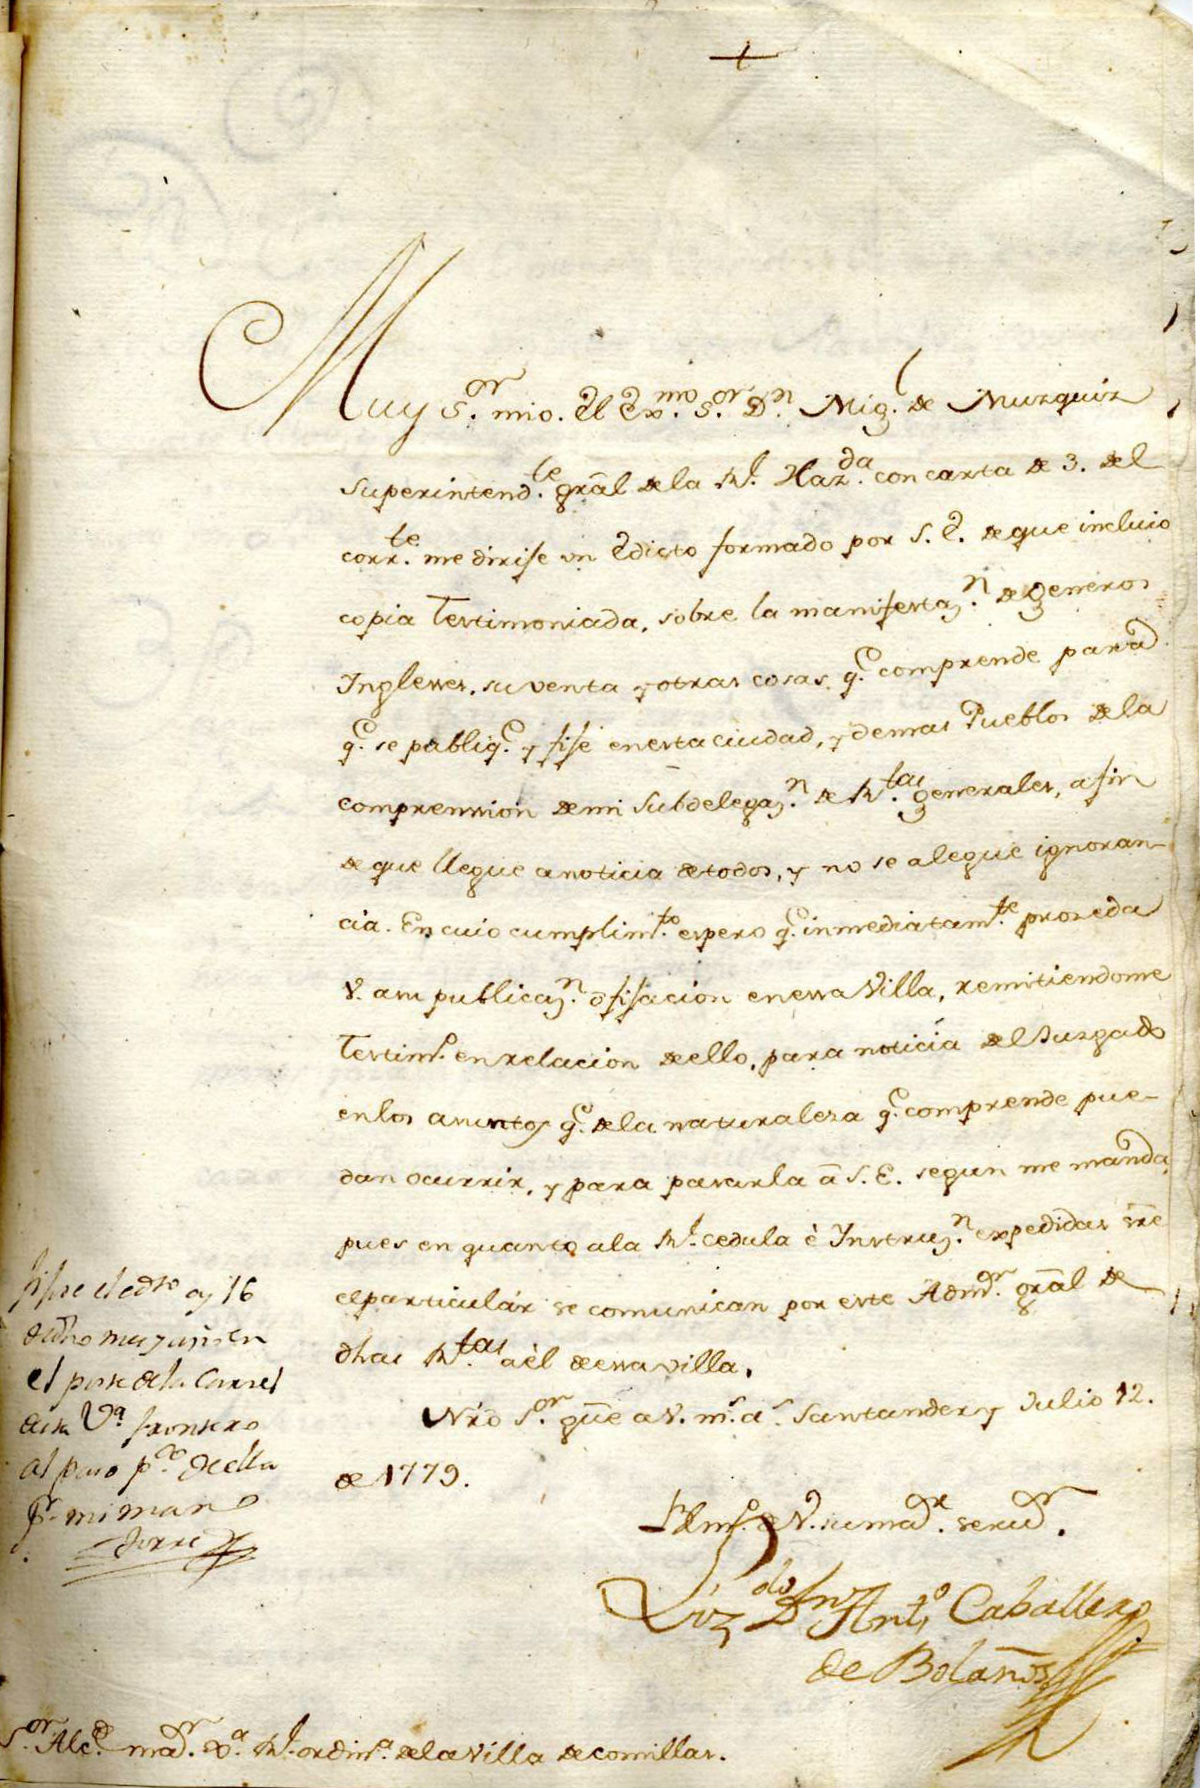 +
Muy S.or mio. El Ex.mo S.or D.n Mig.l de Muzquiz
Superintend.te gral de la R.l Haz.da con carta de 3. del
corr.te me dirije un Edicto formado por S. E. de que incluio
copia Testimoniada, sobre la manifestaz.n de generos
Ingleses, su venta y otras cosas q.e comprende para
q.e se publiq.e y fije en esta ciudad, y demas Pueblos de la
comprension de mi Subdelegaz.n de R.tas generales, a fin
de que llegue a noticia de todos, y no se alegue ignoran-
cia. En cuio cumplim.to espero q.e inmediatam.te proseda
V. a su publicaz.n ō fijacion en essa Villa, remitiendome
Testim.o en relacion de ello, para noticia del Juzgado
en los asuntos q.e de la naturaleza q.e comprende pue-
dan ocurrir, y para pasarla ā S. E. segun me manda,
pues en quanto a la R.l cedula è Instruz.n expedidas sre
el particular se comunican por este Adm.or gral de
dhas R.tas aèl de essa villa.
Nro S.or gue a V. m.s a.s Santander y Julio 12.
de 1779.
B l m.o de V. su ma.or serv.or
Liz.do D.n Ant.o Caballero
de Bolaños
fije el edto oy 16
de dho mes y año en
el poste de la Carzel
de esta V.a frontero
al paso p.co de ella
p.r mi mano
Torre
S.or Alc.e ma.or R.l ordin.a de la Villa de comillas.